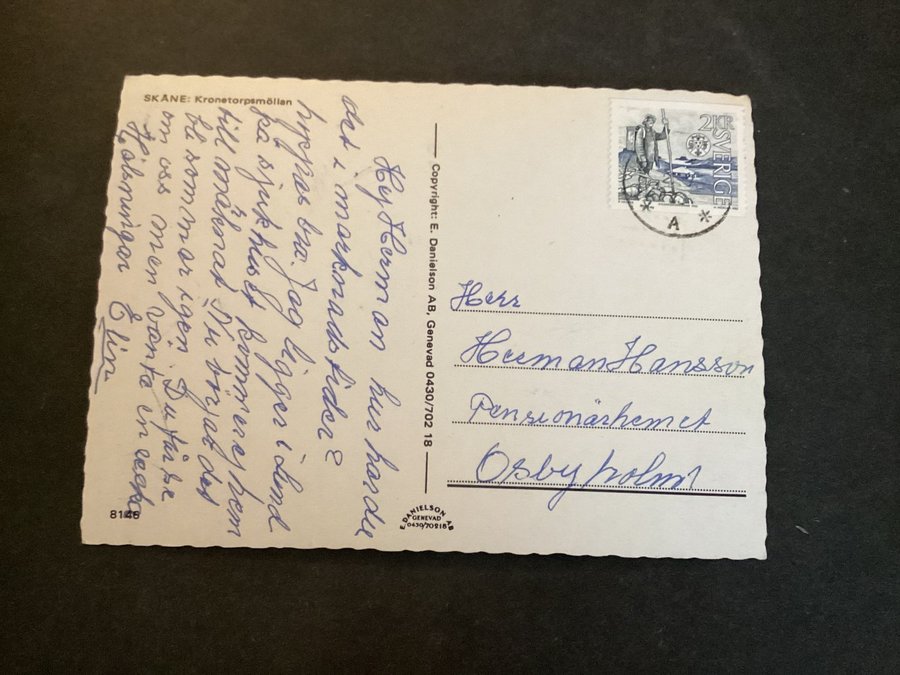 SKÅNE: Kronetorpsmöllan
Hej Herman hur har du
det i marknadstider?
hoppas bra. Jag ligger i Lund
på sjukhuset kommer hem
till
bli sommar igen. Du får se
om oss men vänta en vecka
Hälsningar Elin
8146
Copyright: E. Danielson AB, Genevad 0430/702 18
E. DANIELSON AB
GENEVAD
0430/70218
2KR
SVERIGE
A
Herr
Herman Hansson
Pensionärhemet
Osbyholm